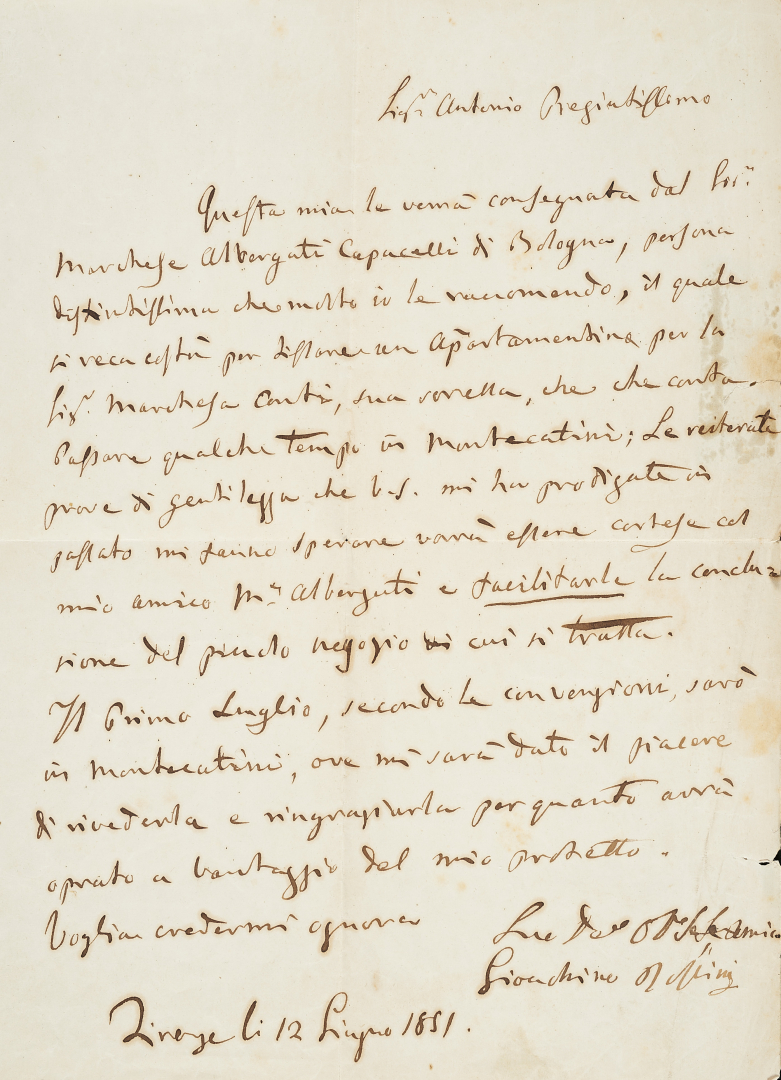 Sigr Antonio Pregiatissimo
Questa mia le verrà consegnata dal Sigr
Marchese Albergati Capacelli di Bologna, persona
distintissima che molto io le raccomando, il quale
si reca costà per fissare un Apartamentino per la
Sigra Marchesa Conti, sua sorella, che che conta
passare qualche tempo in Montecatini; Le reiterate
prove di gentilezza che V.S. mi ha prodigate in
passato mi fanno sperare vorrà essere cortese col
mio amico Mse Albergati e facilitarle la conclu=
sione del piccolo negozio di cui si tratta.
Il primo Luglio, secondo le convenzioni, sarò
in Montecatini, ove mi sarà dato il piacere
di rivederla e ringraziarla per quanto avrà
oprato a vantaggio del mio protetto.
Voglia credermi ognora
Suo
Gioachino Rossini
Firenze li 12 Giugno 1851.